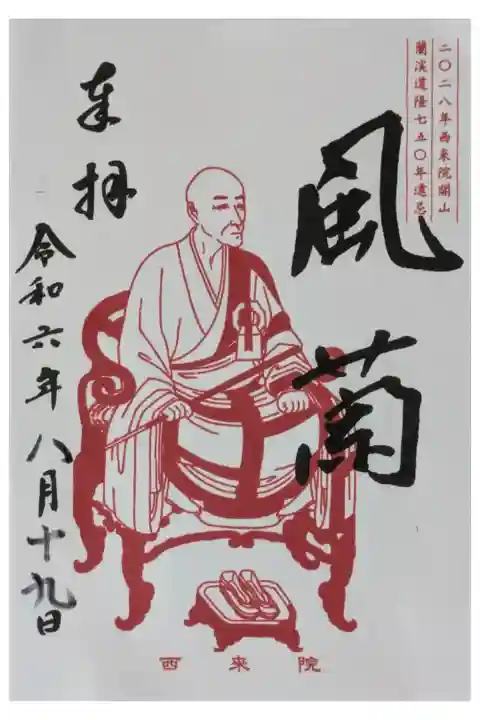 二〇二八年西来院開山
蘭溪道隆七五〇年遠忌
風蘭
奉拝
令和六年八月十九日
西來院